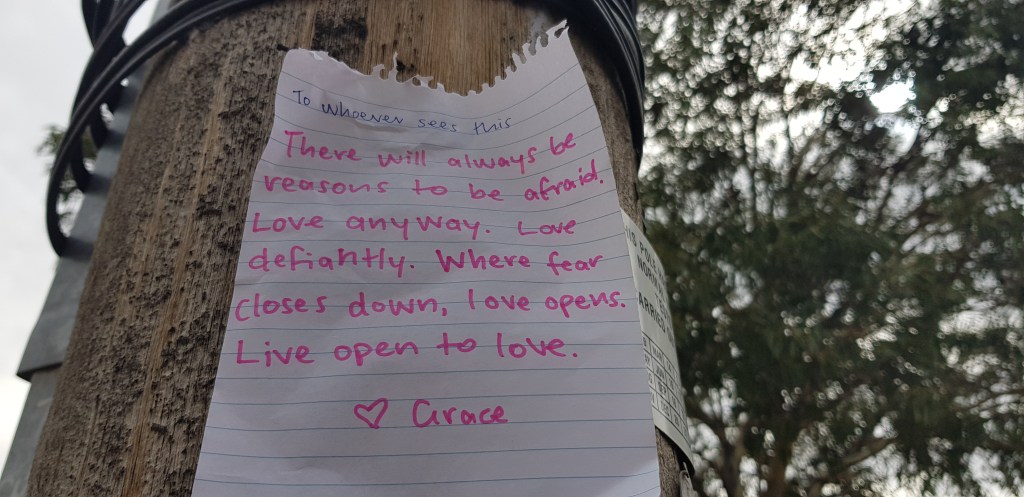 To whoever sees this
There will always be
reasons to be afraid.
Love anyway. Love
defiantly. Where fear
closes down, love opens.
Live open to love.
♡ Grace